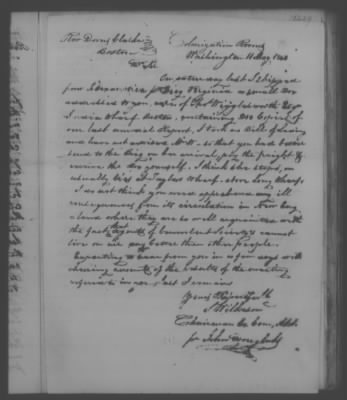 Rev Dorus Clarke
Boston
Dr Sir
Colonization Rooms
Washington 11 May 1840
On saturday last I shipped
from Alexandria pr Brig Virginia a small Box
addressed to you, care of Thos Wigglesworth Esqr
India Wharf Boston, containing 200 Copies of
our last annual Report, I took no Bill of lading
and have not advised Mr W. so that you had better
send to the Brig on her arrival, pay the freight &
receive the Box yourself. I think she stops, or
usually lies at Taylors Wharf, above Long Wharf.
I do not think you need apprehend any ill
consequences from its circulation in New Eng-
land where they are so well acquainted with
the fact, Agents of benevolent Society's cannot
live on air any better than other people.
Expecting to hear from you in a few days with
cheering accounts of the results of the meeting
referred to in our last I remain
Yours Respectfully
S Wilkeson
Chairman Ex Com, A.C.S.
pr